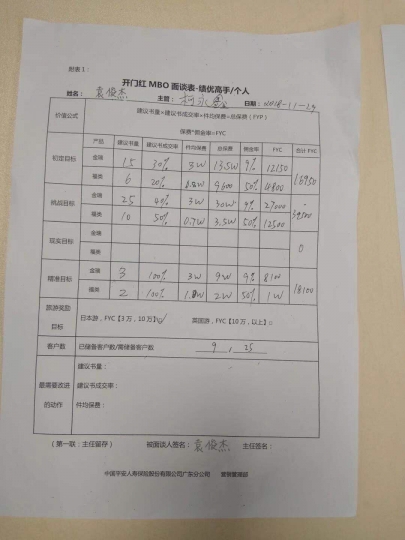 附表1：
开门红 MBO 面谈表-绩优高手/个人
姓名： 袁俊杰 主管： 柯永盛 日期：2018-11-29
价值公式 建议书量×建议书成交率×件均保费=总保费（FYP）
保费*佣金率=FYC
产品 建议书量 建议书成交率 件均保费 总保费 佣金率 FYC 合计 FYC
初定目标 金瑞 15 30% 3W 13.5W 9% 12150 16950
福类 6 20% 0.8W 9600 50% 4800
挑战目标 金瑞 25 40% 3W 30W 9% 27000 39500
福类 10 50% 0.7W 3.5W 50% 12500
现实目标 金瑞 0
福类
精准目标 金瑞 3 100% 3W 9W 9% 8100 18100
福类 2 100% 1.0W 2W 50% 1W
旅游奖励目标 日本游，FYC【3万，10万】 英国游，FYC【10万，以上】□
客户数 已储备客户数/需储备客户数 9 , 25
最需要改进的动作 建议书量：
建议书成交率：
件均保费：
（第一联：主任留存） 被面谈人签名：袁俊杰 主任签名：
中国平安人寿保险股份有限公司广东分公司